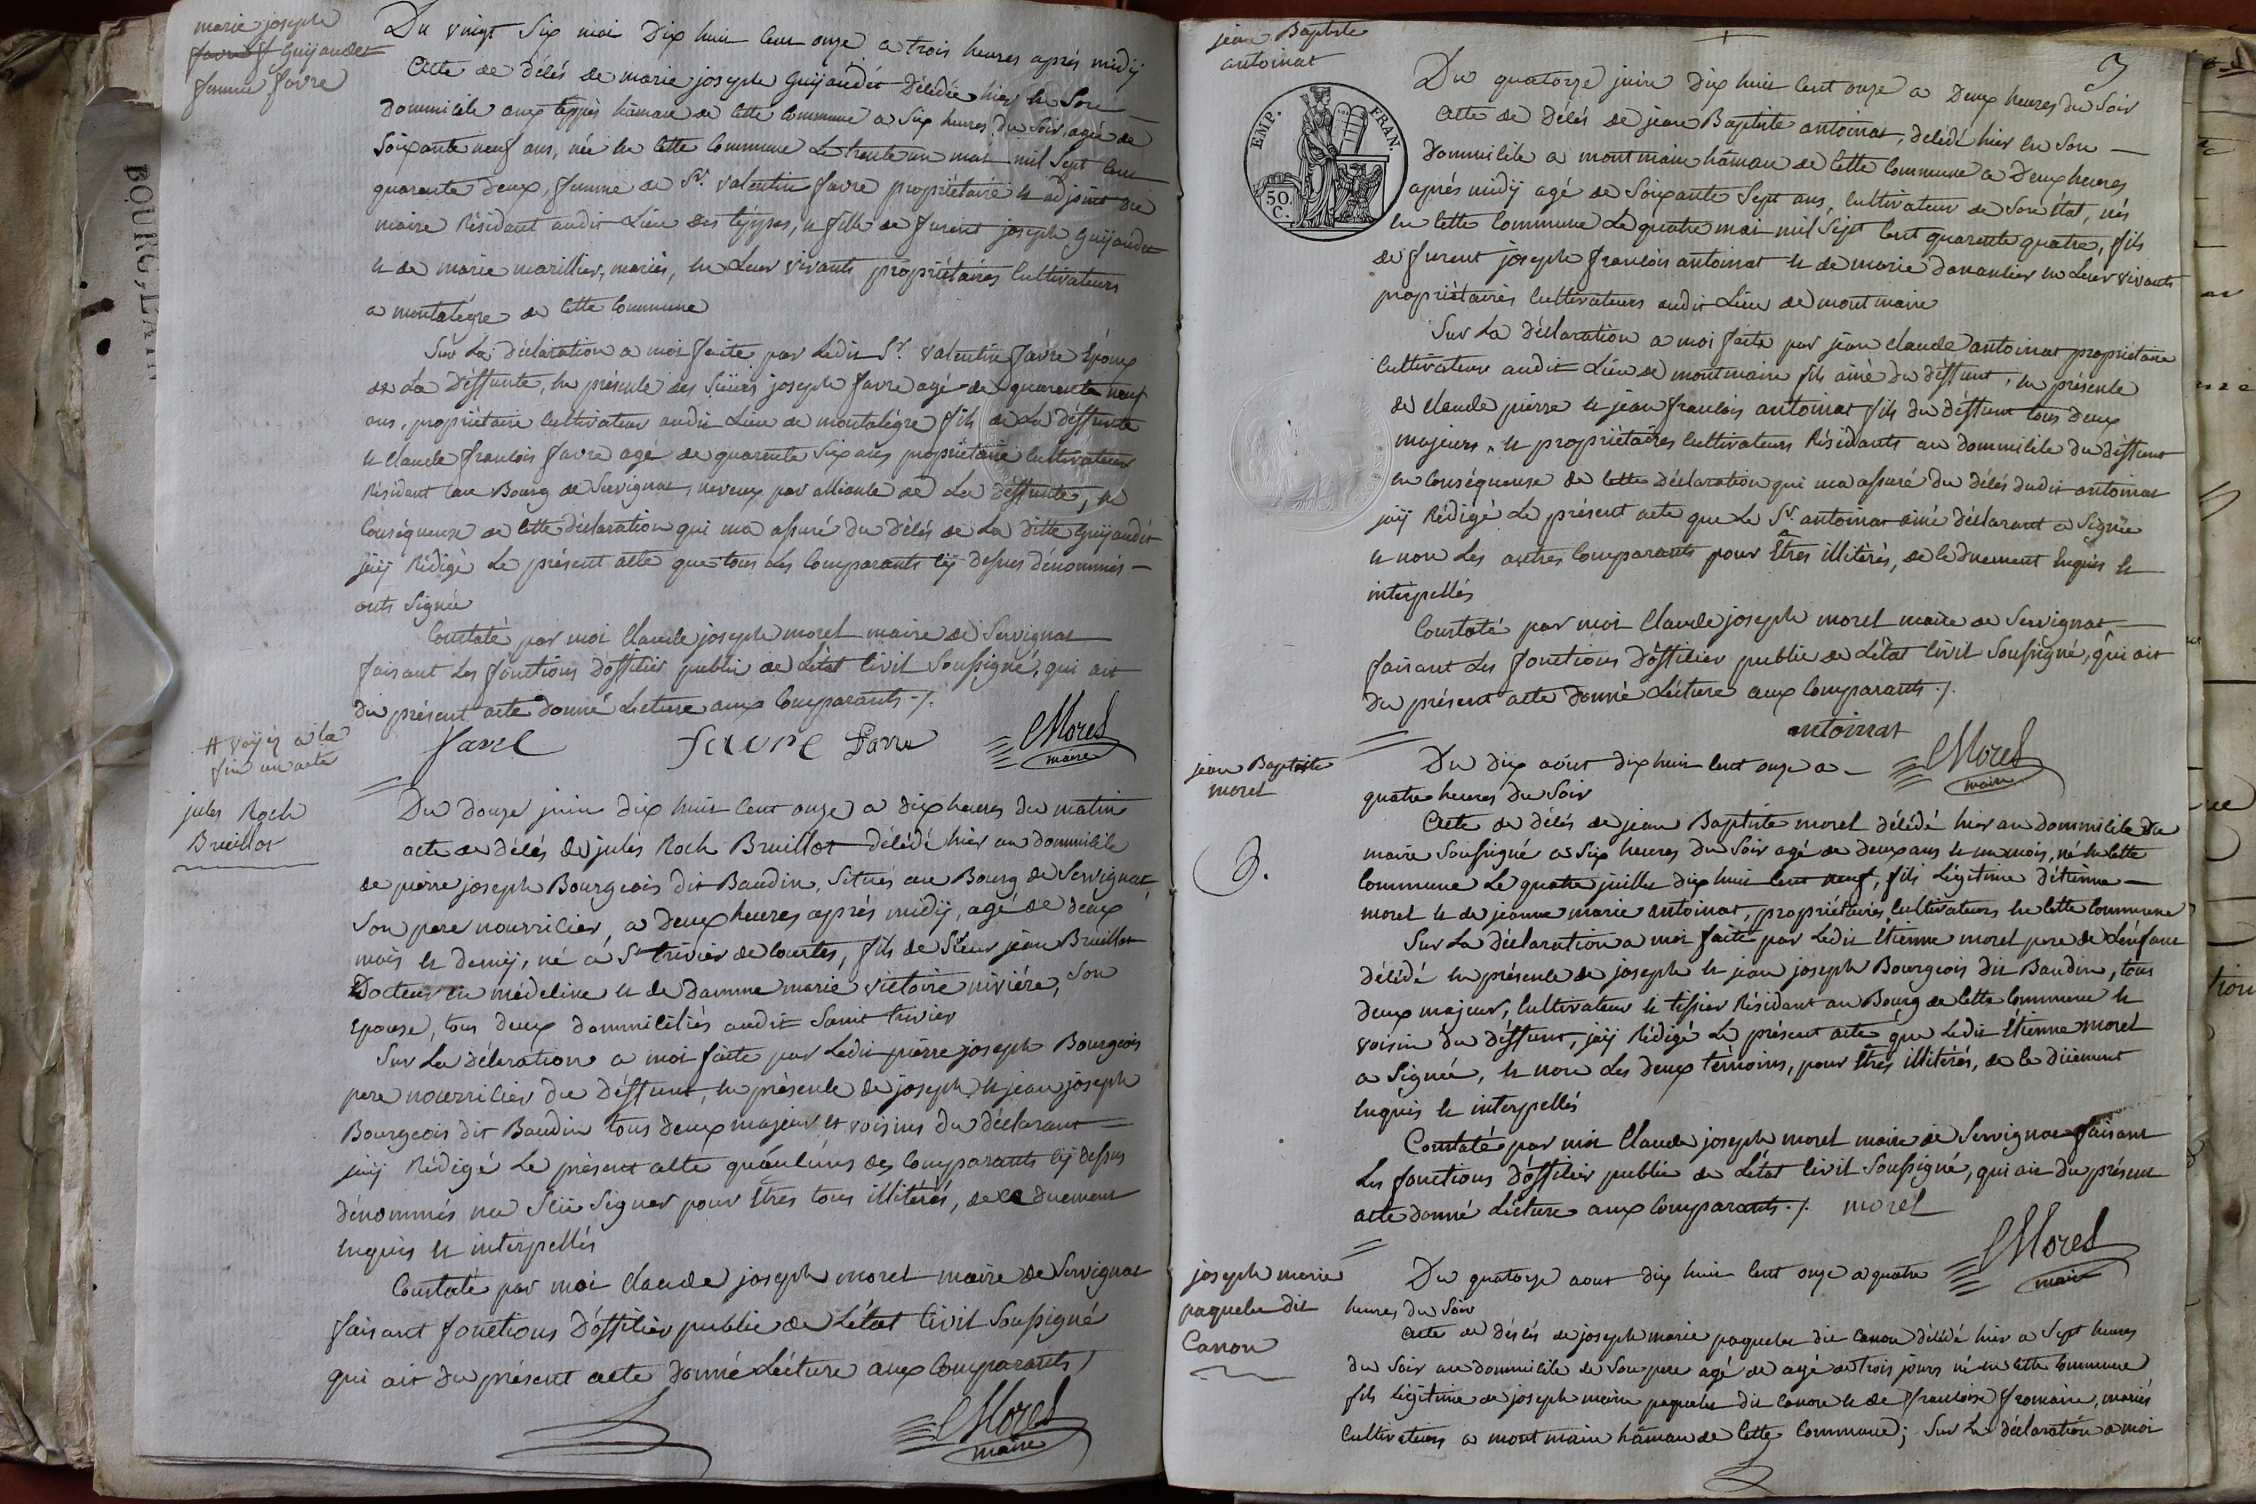 marie joseph
favre f guijaudet
femme favre
Du vingt Six mai Dix huit Cent onze a trois heures aprés midij
Acte de décés de marie joseph Guijaudet Décédée hier en Son
Dommicile aux teppes hâmau de Cette Commune a Six heures du Soir agée de
Soixante neuf ans, née en Cette Commune Le trente un mai mil Sept Cent
quarente Deux, femme de Sr. valentin favre propriétaire et adjoint du
maire Résidant audit Lieu des téppes, et fille de furent joseph Guijaudet
et de marie marillier, mariés, en Leur vivants propriétaires Cultivateurs
a montalégre de Cette Commune
Sur La déclaration a moi faite par Ledit Sr. valentin favre Epoux
de La Déffunte, en présence des Sieurs joseph favre agé de quarente neuf
ans, propriétaire Cultivateur audit Lieu de montalégre fils de La Déffunte
et Claude francois favre agé de quarente Six ans propriétaire Cultivateur
Résidant au Bourg de Servignat, neveux par alliance de La Déffunte, en
Conséquense de Cette déclaration qui ma assuré du décés de La ditte Guijaudet
jaij Rédigé Le présent acte que tous Les Comparants Cij dessus dénommés
onts Signée
Constaté par moi Claude joseph morel maire de Servignat
faisant Les fonctions Dofficier public de L'état Civil Soussigné, qui ait
du présent acte donné Lecture aux Comparants ./.
favre favre Favre CMorel
maire
# voyez a la
fin un acte
jules Roch
Bruillot
Du Douze juin dix huit Cent onze a dix heures du matin
acte de décés de jules Roch Bruillot décédé hier au dommicile
de pierre joseph Bourgeois dit Baudin, Situés au Bourg de Servignat
Son pere nourricier, a Deux heures aprés midij, agé de deux
mois et demij, né a St. trivier de Courtes, fils de Sieur jean Bruillot
Docteur en médecine et de Damme marie victoire niviére, Son
Epouse, tous deux dommiciliés audit Saint trivier
Sur La déclaration a moi faite par Ledit pierre joseph Bourgeois
pere nourricier du déffunt, en présence de joseph et jean joseph
Bourgeois dit Baudin tous deux majeur et voisins du déclarant
jaij Rédigé Le présent acte qu'aucuns des Comparants Cij dessus
dénommés na Sçû Signer pour Etres tous illitérés, de ce duement
Enquis et interpellés
Constaté par moi Claude joseph morel maire de Servignat
faisant fonctions Dofficier public de L'état Civil Soussigné
qui ait du présent acte donné Lécture aux Comparants
CMorel
maire
3
jean Baptiste
antoinat
EMP. FRAN.
50.
C.
Du quatorze juin Dix huit Cent onze a Deux heures du Soir
Acte de Décés de jean Baptiste antoinat, décédé hier en Son
Dommicile a montmain hâmau de Cette Commune a Deux heures
aprés midij agé de Soixante Sept ans, Cultivateur de Son état, nés
en Cette Commune Le quatre mai mil Sept Cent quarente quatre, fils
de furent joseph francois antoinat et de marie danancier en Leur vivants
propriétaires Cultivateurs audit Lieu de montmain
Sur La déclaration a moi faite par jean Claude antoinat propriétaire
Cultivateur audit Lieu de montmain fils ainé du déffunt, en présence
de Claude pierre et jean francois antoinat fils du déffunt tous deux
majeurs, et propriétaires Cultivateurs Résidants au dommicile du déffunt
en Conséquense de Cette déclaration qui ma assuré du décés dudit antoinat
jaij Rédigé Le présent acte que Le Sr. antoinat ainé déclarant a Signée
et non Les autres Comparants pour Êtres illitérés, de Ce duement Enquis et
interpellés
Constaté par moi Claude joseph morel maire de Servignat
faisant Les fonctions D'officier public de L'état Civil Soussigné, qui ait
du présent acte donné Lécture aux Comparants ./.
antoinat CMorel
maire
jean Baptiste
morel
Du dix août dix huit Cent onze a
quatre heures du Soir
Acte de décés de jean Baptiste morel décédé hier au dommicile du
maire Soussigné a Six heures du Soir agé de deux ans et un mois, né en Cette
Commune Le quatre juillet dix huit Cent neuf, fils Légitime d'étienne
morel et de jeanne marie antoinat, propriétaires Cultivateurs en Cette Commune
Sur La déclaration a moi faite par Ledit Etienne morel pere de L'énfant
décédé en présence de joseph et jean joseph Bourgeois dit Baudin, tous
deux majeur, Cultivateur et tissier Résidant au Bourg de Cette Commune et
voisin du déffunt, jaij Rédigé Le présent acte que Ledit Étienne morel
a Signée, et non Les deux témoins, pour Êtres illitérés, de Ce düement
Enquis et interpellés
Constaté par moi Claude joseph morel maire de Servignat faisant
Les fonctions D'officier public de L'état Civil Soussigné, qui ait du présent
acte donné Lécture aux Comparants ./. morel
CMorel
maire
joseph marie
paquelet dit
Canon
Du quatorze aout dix huit Cent onze a quatre
heures du Soir
Acte de décés de joseph marie paquelet dit Canon décédé hier a Sept heures
du Soir au dommicile de Son pere agé de agé de trois jours né en Cette Commune
fils Légitime de joseph marie paquelet dit Canon et de francoise fromaire, mariés
Cultivateurs a montmain hâmau de Cette Commune; Sur La déclaration a moi